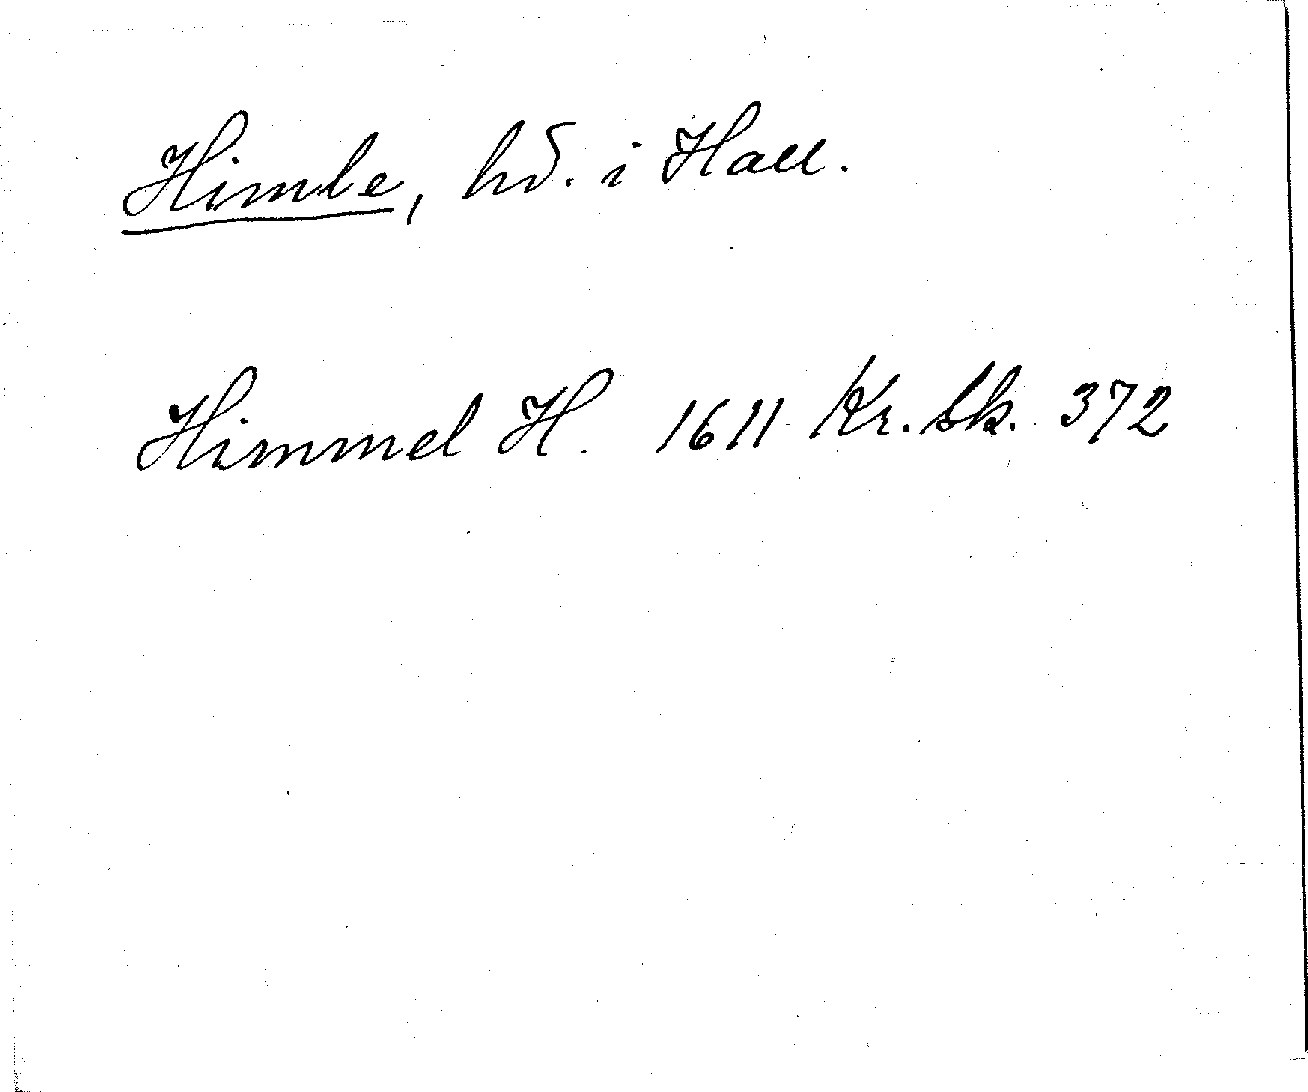 Himle, hd. i Hall.
Himmel H. 1611 Kr. Sk. 372